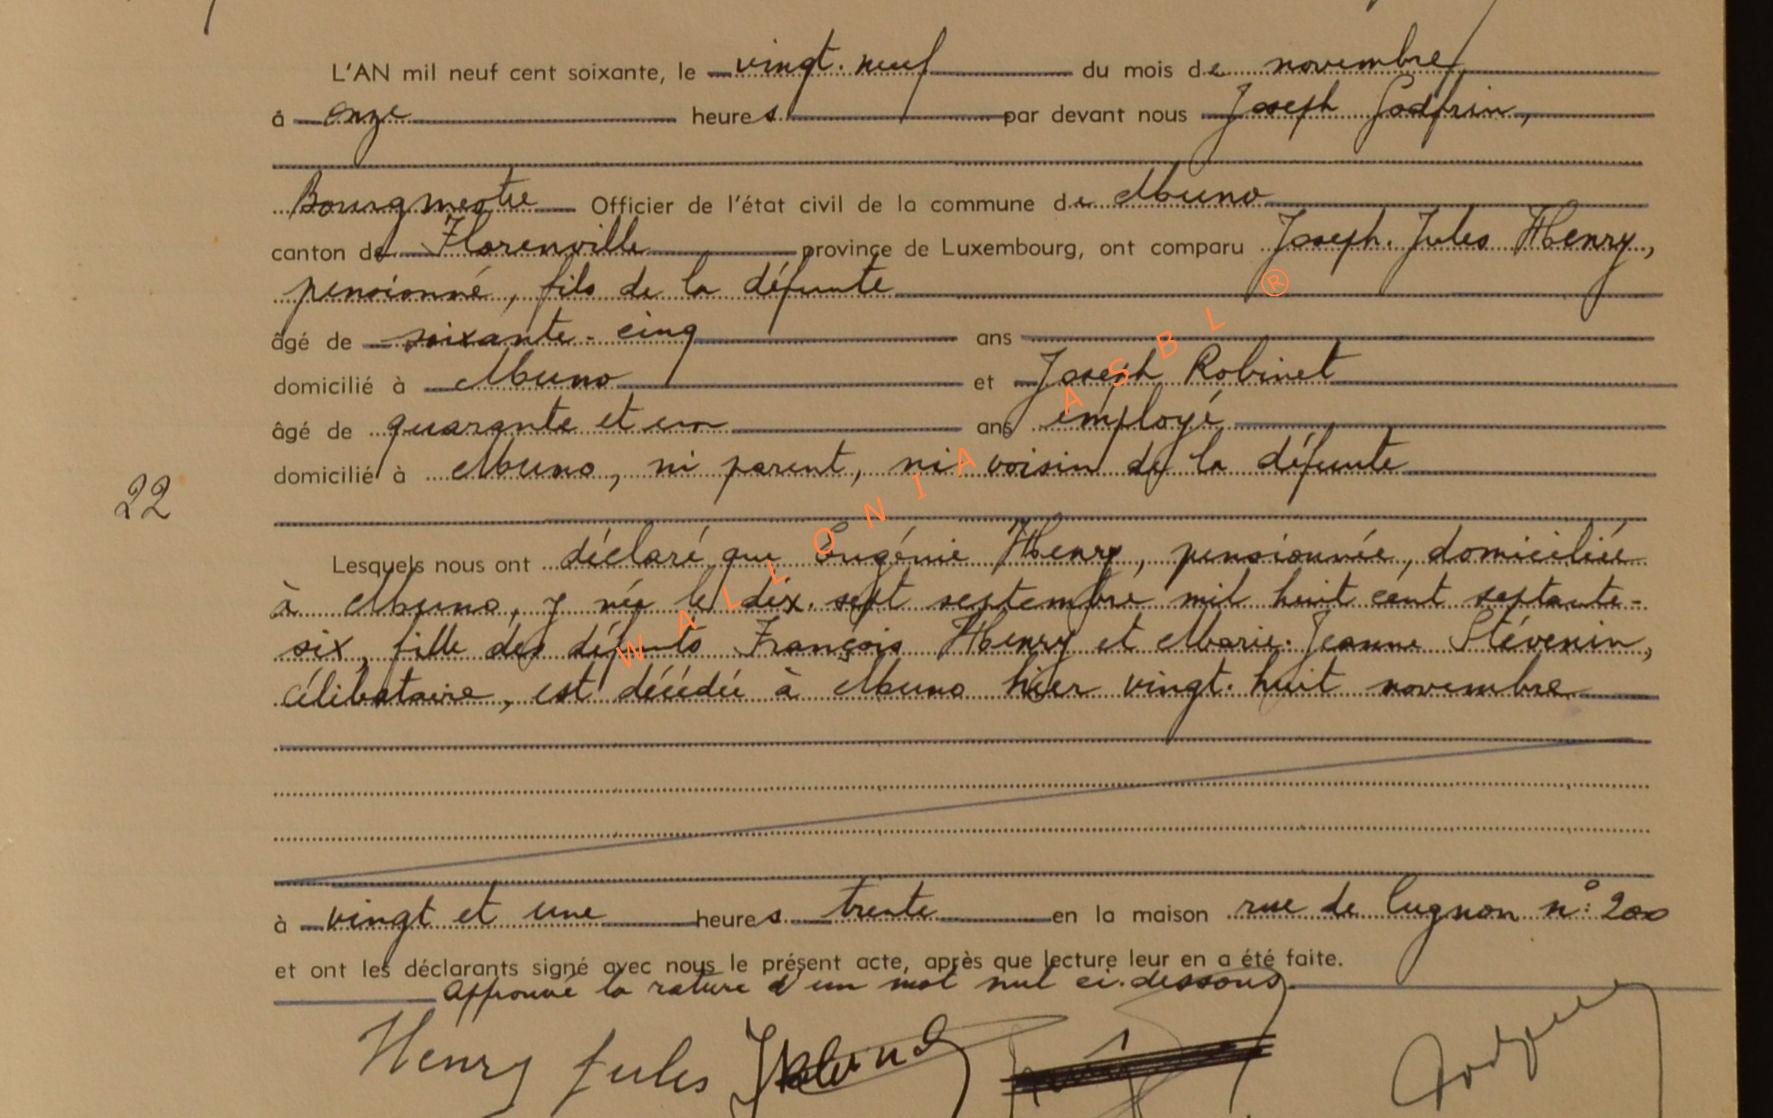 L'AN mil neuf cent soixante, le vingt-neuf du mois de novembre
à onze heures par devant nous Joseph Godfrin,
Bourgmestre Officier de l'état civil de la commune de Muno
canton de Florenville province de Luxembourg, ont comparu Joseph-Jules Henry,
pensionné, fils de la défunte
âgé de soixante-cinq ans
domicilié à Muno et Joseph Robinet
âgé de quarante et un ans employé
domicilié à Muno, ni parent, ni voisin de la défunte
22
Lesquels nous ont déclaré que Eugénie Henry, pensionnée, domiciliée
à Muno, y née le dix-sept septembre mil huit cent septante-
six, fille des défunts François Henry et Marie-Jeanne Stévenin,
célibataire, est décédée à Muno hier vingt-huit novembre
à vingt et une heures trente en la maison rue de Cugnon n° 200
et ont les déclarants signé avec nous le présent acte, après que lecture leur en a été faite.
Approuvé la rature d'un mot nul ci-dessous
Henry Jules
WALLONIA ASBL ®